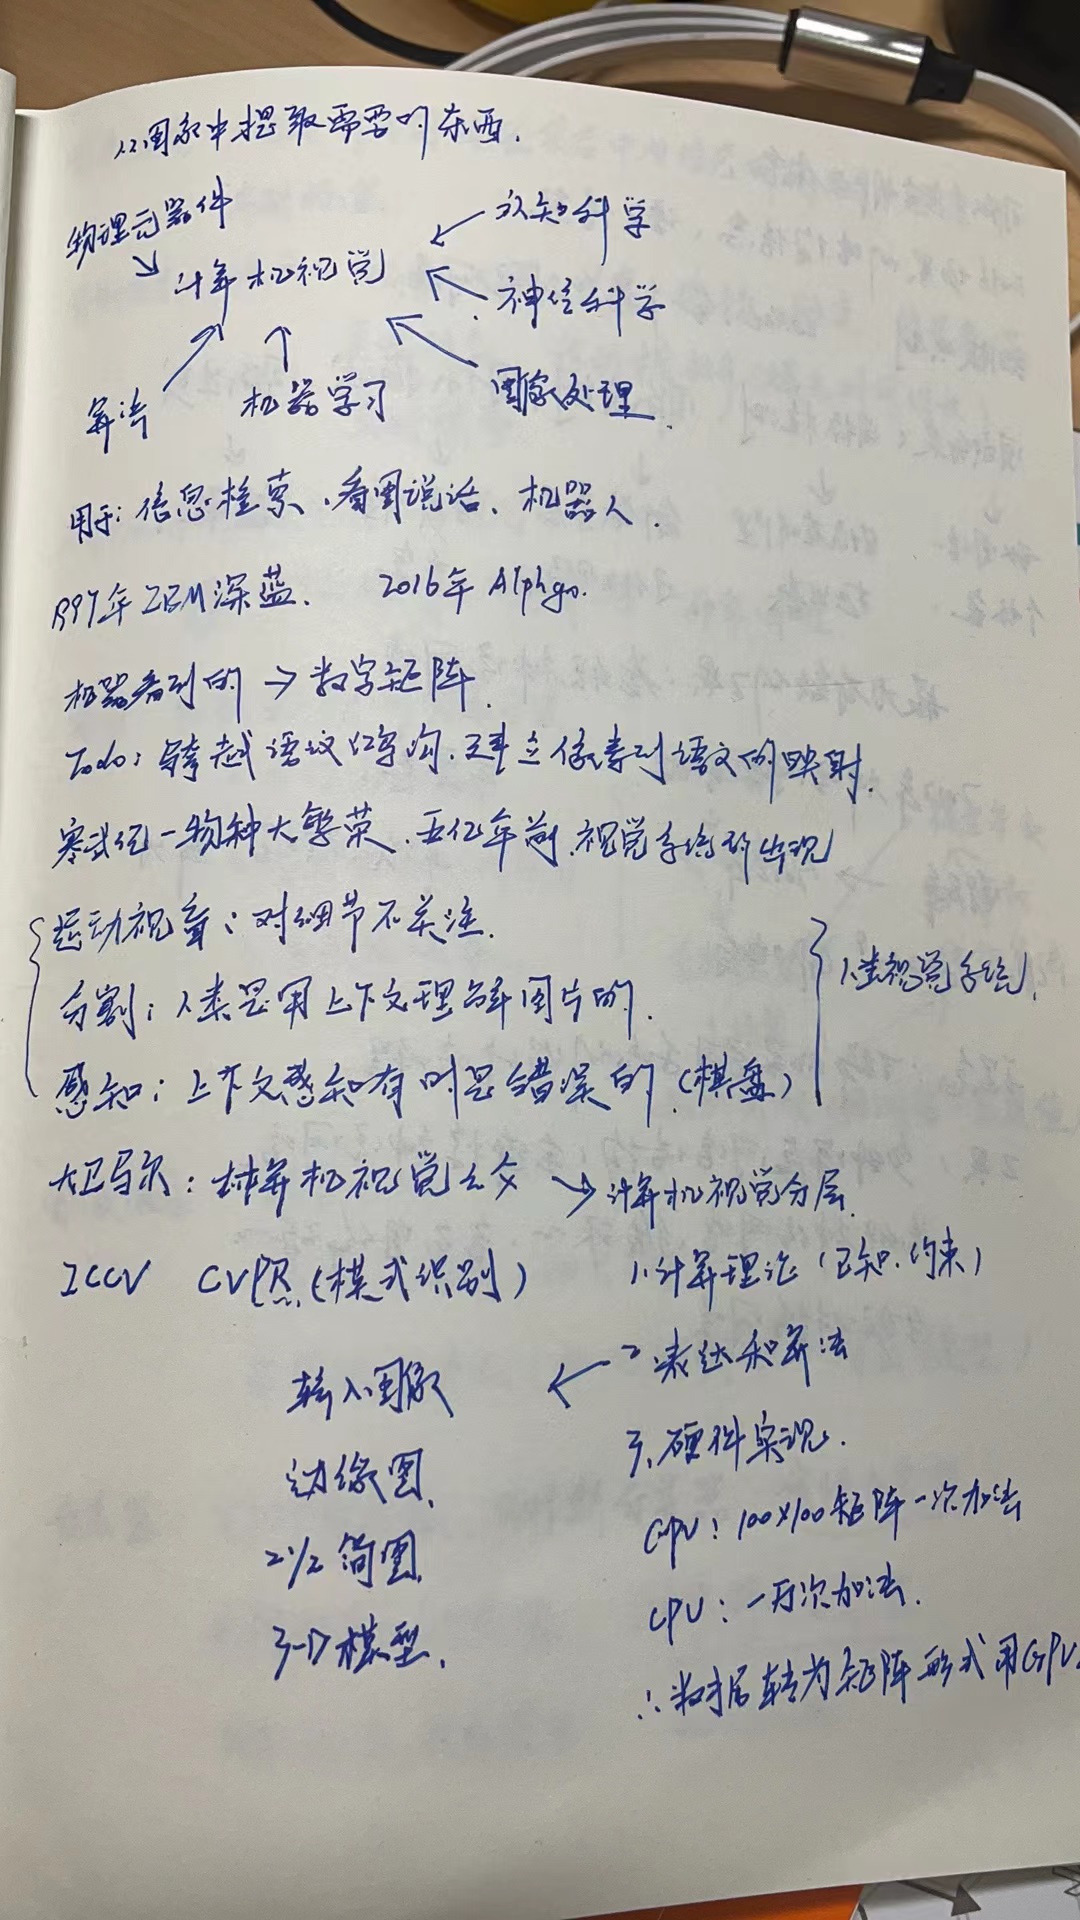 从图象中提取需要的东西.
物理元器件
认知科学
计算机视觉
神经科学
算法
机器学习
图象处理.
用于: 信息检索、看图说话、机器人.
1997年 IBM深蓝. 2016年 Alphgo.
机器看到的 → 数字矩阵.
Todo: 跨越语议鸿沟. 建立像素到语文的映射.
寒武纪一物种大繁荣. 五亿年前. 视觉系统所出现
运动视盲: 对细节不关注.
分割: 人类是用上下文理解图片的.
人类视觉系统.
感知: 上下文感知有时是错误的. (棋盘)
大卫马尔: 计算机视觉之父 → 计算机视觉分层.
ICCV CVPR. (模式识别)
1. 计算理论 (已知. 约束)
2. 表达和算法
输入图象
3. 硬件实现.
边缘图.
GPU: 100×100矩阵一次加法
2 1/2 简图.
CPU: 一万次加法.
3-D模型.
∴ 数据转为矩阵形式用GPU.